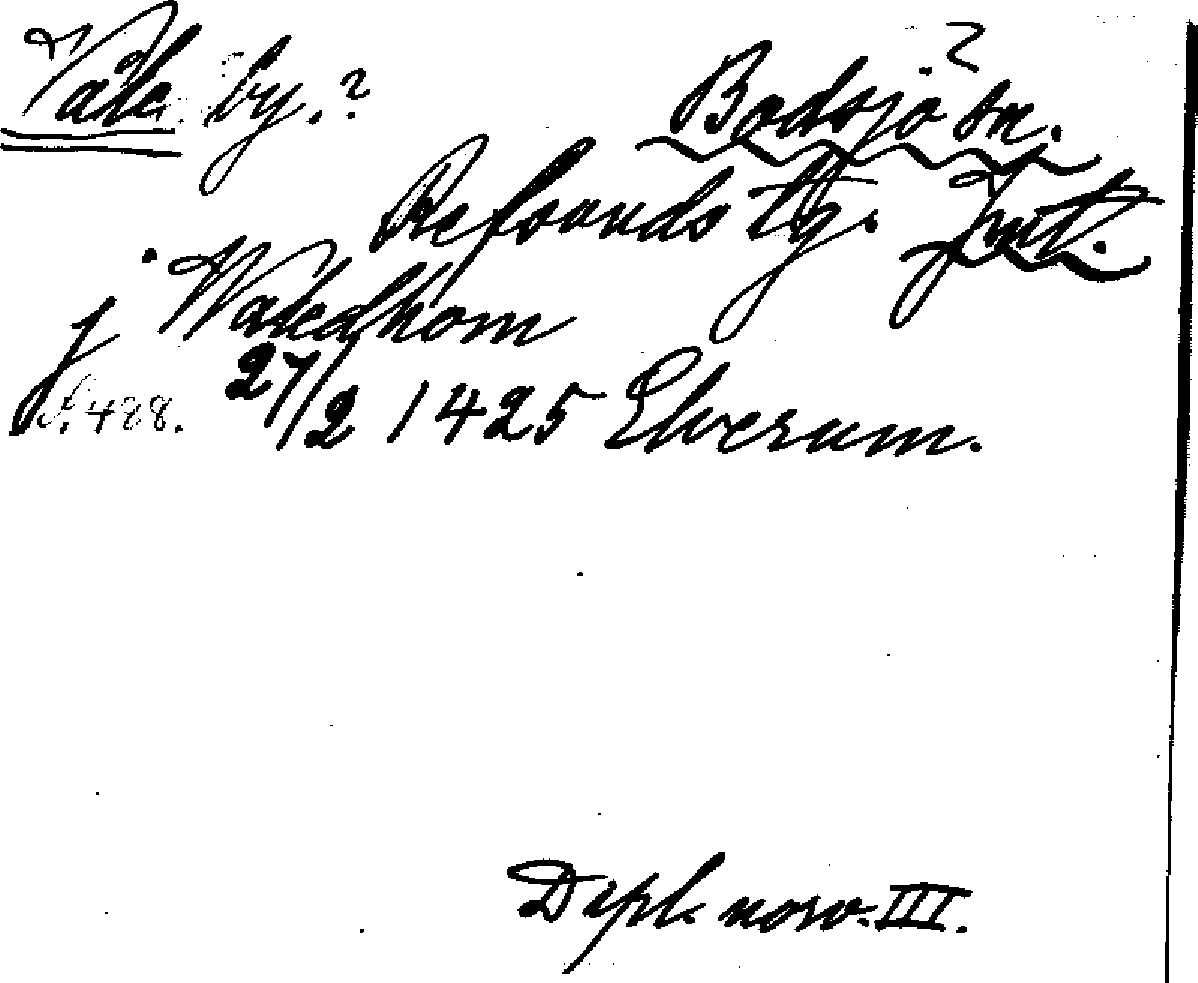 Våle by.? Bodsjö sn. ?
Refsunds tg. Jmt.
j Waledhom
s. 488. 27/2 1425 Elverum.
Dipl. norv. III.